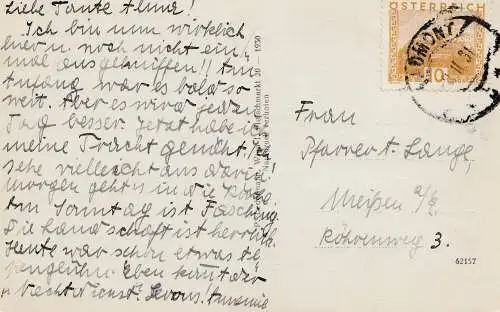 Liebe Tante Anna!
Ich bin nun wirklich
hier u. noch nicht ein-
mal ausgekniffen!! Am
Anfang war es bald so
weit. Aber es wird jeden
Tag besser. Jetzt habe ich
meine Tracht gemacht
sehe vielleicht aus darin
morgen geht's in die
Am Sonntag ist Fasching.
Die Landschaft ist herrlich
Heute war schon etwas
penglühn. Eben kommt der
Nechtdienst. Servus! Annemie
ÖSTERREICH
10
ADMONT
II 31
1930
Frau
Pfarrer t. Lange
Meißen a/E
Röhrenweg 3.
62157